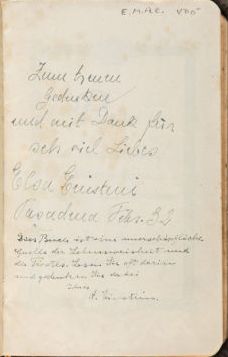 E.M.A.E. VDO
Zum treuen
Gedenken
und mit Dank für
sehr viel Liebes
Elsa Einstein
Pasadena Febr. 32
Dies Buch ist eine unerschöpfliche
Quelle der Lebensweisheit und
des Trostes. Lesen Sie oft darin
und gedenken Sie dabei
Ihres
A. Einstein.